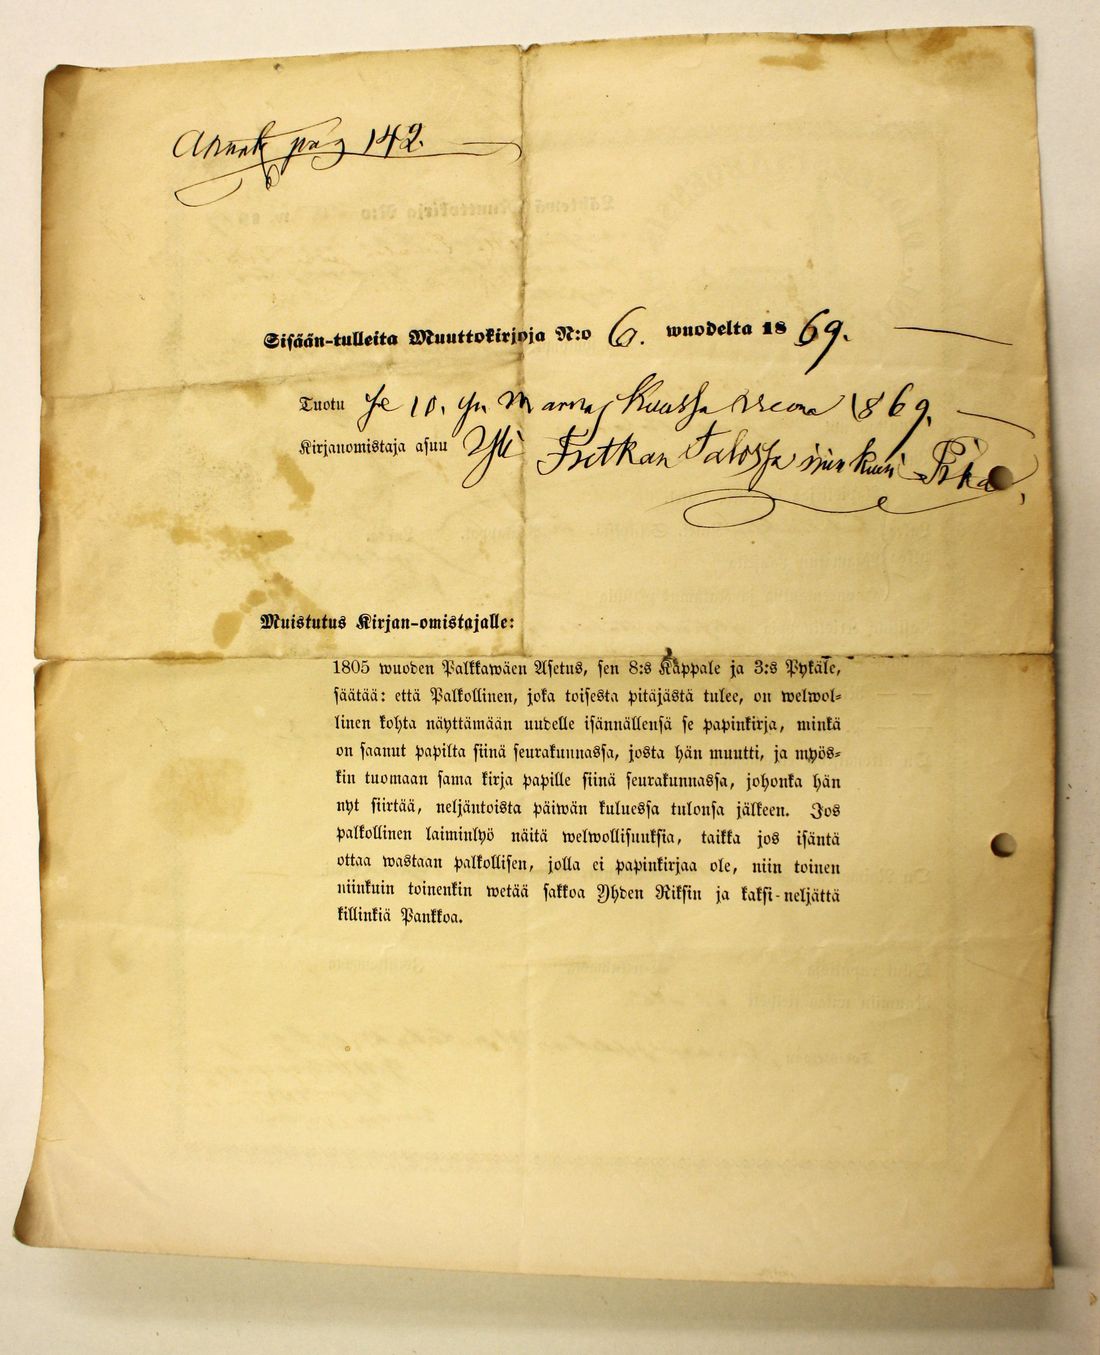 pag 142.
Sisään-tulleita Muuttokirjoja N:o 6. wuodelta 1869.
Tuotu 10. Marras Kuussa 1869.
Kirjanomistaja asuu Yli Talossa niin kuin Pika
Muistutus Kirjan-omistajalle:
1805 wuoden Palkkawäen Asetus, sen 8:s Kappale ja 3:s Pykäle,
säätää: että Palkollinen, joka toisesta pitäjästä tulee, on welwol=
linen kohta näyttämään uudelle isännällensä se papinkirja, minkä
on saanut papilta siinä seurakunnassa, josta hän muutti, ja myös=
kin tuomaan sama kirja papille siinä seurakunnassa, johonka hän
nyt siirtää, neljäntoista päiwän kuluessa tulonsa jälkeen. Jos
palkollinen laiminlyö näitä welwollisuuksia, taikka jos isäntä
ottaa wastaan palkollisen, jolla ei papinkirjaa ole, niin toinen
niinkuin toinenkin wetää sakkoa Yhden Riksin ja kaksi-neljättä
killinkiä Pankkoa.